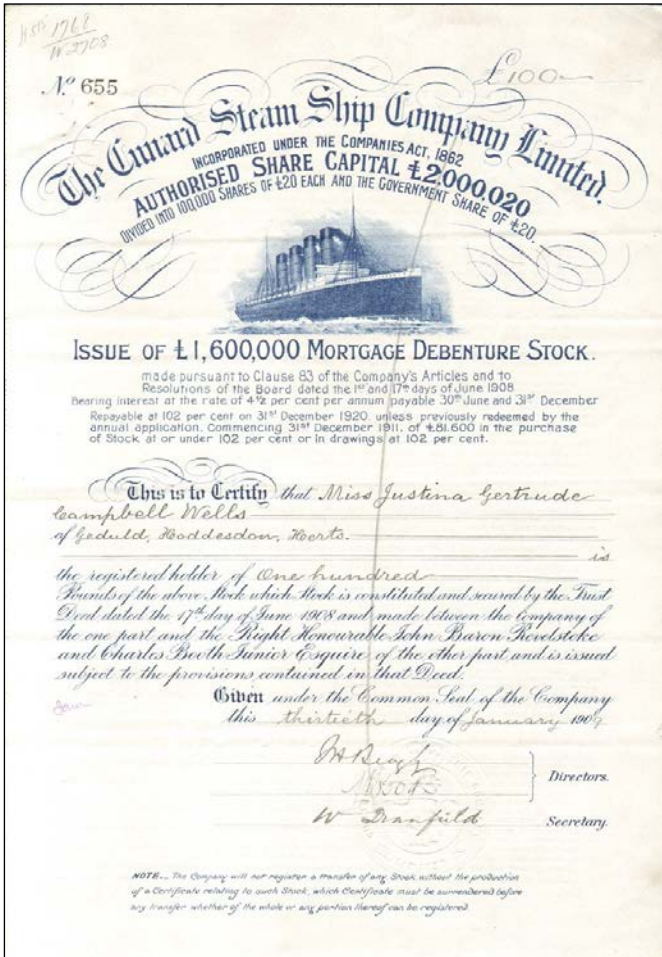 1768
No 655
£100
The Cunard Steam Ship Company Limited.
INCORPORATED UNDER THE COMPANIES ACT, 1862
AUTHORISED SHARE CAPITAL £2,000,020
DIVIDED INTO 100,000 SHARES OF £20 EACH AND THE GOVERNMENT SHARE OF £20.
ISSUE OF £1,600,000 MORTGAGE DEBENTURE STOCK.
made pursuant to Clause 83 of the Company's Articles and to
Resolutions of the Board dated the 1st and 17th days of June 1908
Bearing interest at the rate of 4½ per cent per annum payable 30th June and 31st December
Repayable at 102 per cent on 31st December 1920, unless previously redeemed by the
annual application. Commencing 31st December 1911, of £81,600 in the purchase
of Stock at or under 102 per cent or in drawings at 102 per cent.
This is to Certify that Miss Justina Gertrude
Campbell Wells
of Geduld, Hoddesdon, Herts.
is
the registered holder of One hundred
Pounds of the above Stock which Stock is constituted and secured by the Trust
Deed dated the 17th day of June 1908 and made between the Company of
the one part and the Right Honourable John Baron Revelstoke
and Charles Booth Junior Esquire of the other part and is issued
subject to the provisions contained in that Deed.
Given under the Common Seal of the Company
this thirtieth day of January 1909
Directors.
Secretary.
NOTE._ The Company will not register a transfer of any Stock without the production
of a Certificate relating to such Stock, which Certificate must be surrendered before
any transfer whether of the whole or any portion thereof can be registered.